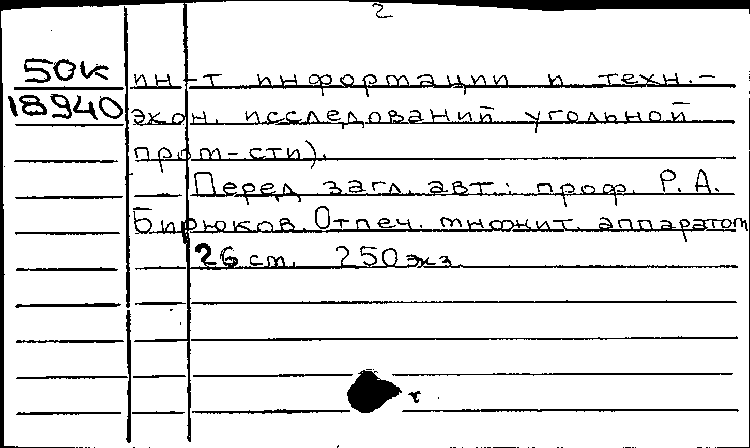 2
50к ин-т информации и техн.-
18940 экон. исследований угольной
пром-сти).
Перед загл. авт.: проф. Р. А.
Бирюков. Отпеч. множит. аппаратом
26 см. 250 экз.